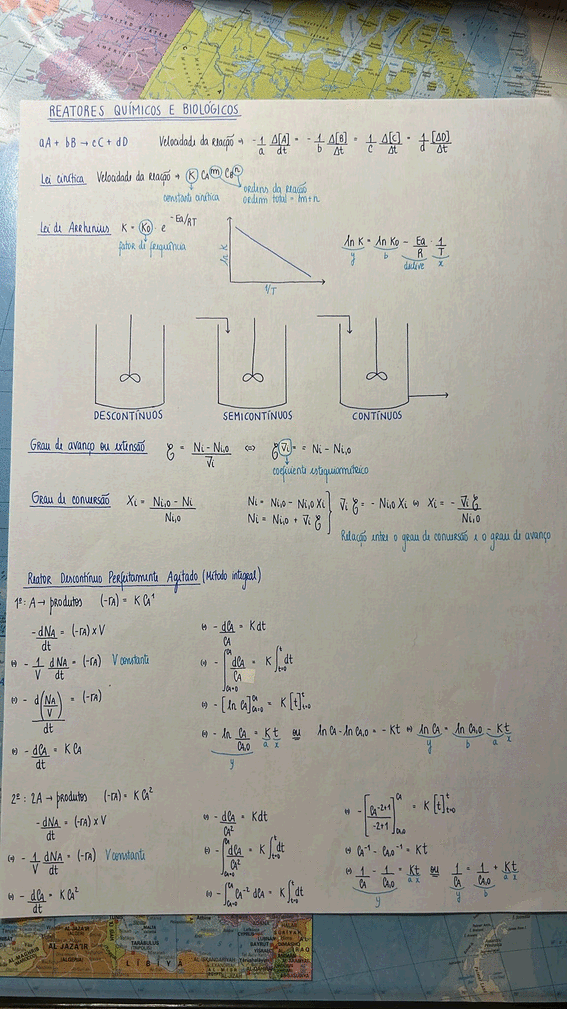 UNITED STATES OF
AMERICA
REATORES QUÍMICOS E BIOLÓGICOS
aA + bB → cC + dD Velocidade da reação → - 1/a Δ[A]/dt = - 1/b Δ[B]/Δt = 1/c Δ[C]/Δt = 1/d Δ[D]/Δt
Lei cinética Velocidade da reação → K CA^m CB^n
constante cinética
ordens da reação
ordem total = m+n
Lei de Arrhenius K = K0 · e^-Ea/RT
fator de frequência
ln K
1/T
ln K = ln K0 - Ea/R · 1/T
y b declive x
DESCONTÍNUOS SEMICONTÍNUOS CONTÍNUOS
Grau de avanço ou extensão ξ = Ni - Ni,0 / νi ⇔ ξ νi = Ni - Ni,0
coeficiente estequiométrico
Grau de conversão Xi = Ni,0 - Ni / Ni,0
Ni = Ni,0 - Ni,0 Xi
Ni = Ni,0 + νi ξ
νi ξ = - Ni,0 Xi ⇔ Xi = - νi ξ / Ni,0
Relação entre o grau de conversão e o grau de avanço
Reator Descontínuo Perfeitamente Agitado (Método integral)
1ª: A → produtos (-rA) = K CA^1
- dNA/dt = (-rA) x V
⇔ - 1/V dNA/dt = (-rA) V constante
⇔ - d(NA/V)/dt = (-rA)
⇔ - dCA/dt = K CA
⇔ - dCA/CA = K dt
⇔ - ∫ CA=0 CA dCA/CA = K ∫ t=0 t dt
⇔ - [ln CA] CA=0 CA = K [t] t=0 t
⇔ - ln CA/CA,0 = Kt ou ln CA - ln CA,0 = - Kt ⇔ ln CA = ln CA,0 - Kt
y a x y b a x
2ª: 2A → produtos (-rA) = K CA^2
- dNA/dt = (-rA) x V
⇔ - 1/V dNA/dt = (-rA) V constante
⇔ - dCA/dt = K CA^2
⇔ - dCA/CA^2 = K dt
⇔ - ∫ CA=0 CA dCA/CA^2 = K ∫ t=0 t dt
⇔ - ∫ CA=0 CA CA^-2 dCA = K ∫ t=0 t dt
⇔ - [CA^-2+1 / -2+1] CA,0 CA = K [t] t=0 t
⇔ CA^-1 - CA,0^-1 = Kt
⇔ 1/CA - 1/CA,0 = Kt ou 1/CA = 1/CA,0 + Kt
y a x y b a x
AL JAZA'IR
AL JAZA'IR
(ALGERIA)
TARABULUS
(TRIPOLI)
LĪBIYĀ
BAYRUT
DIMASHQ
BAGHDAD